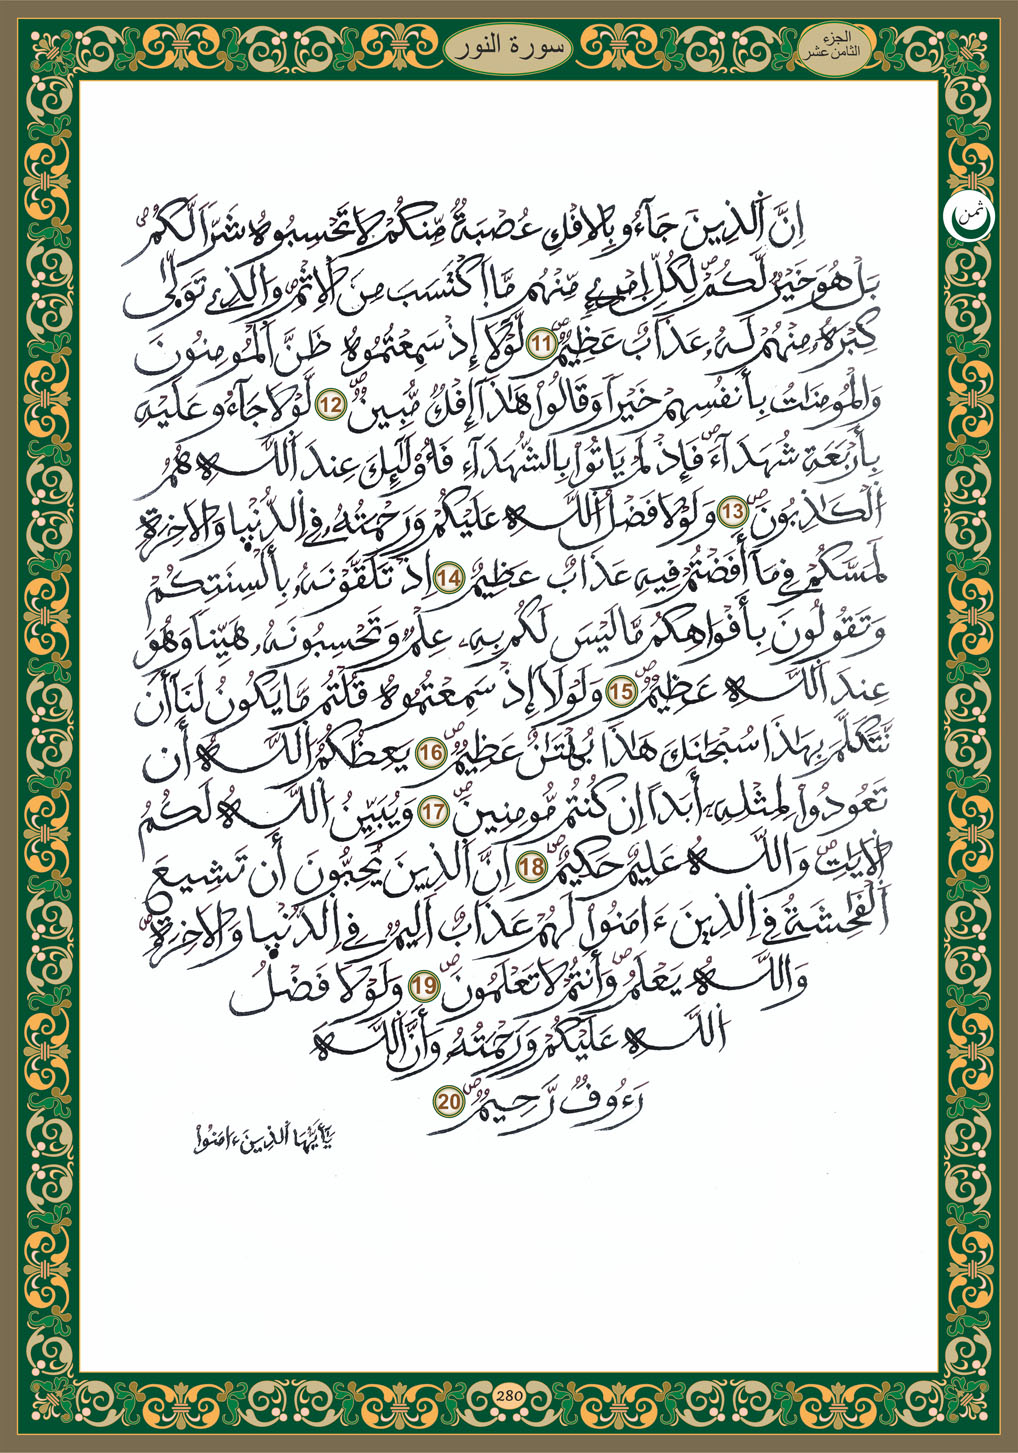 سورة النور
الجزء
الثامن عشر
ثمن
اِنَّ اَ۬لذِينَ جَآءُو بِالِافْكِ عُصْبَةٞ مِّنكُمْ لَا تَحْسِبُوهُ شَرّاٗ لَّكُمۖ
بَلْ هُوَ خَيْرٞ لَّكُمْۖ لِكُلِّ اِ۪مْرِےٕٖ مِّنْهُم مَّا اَ۪كْتَسَبَ مِنَ اَ۬لِاثْمِۖ وَالذِے تَوَلّ۪ىٰ
كِبْرَهُۥ مِنْهُمْ لَهُۥ عَذَابٌ عَظِيمٞۖ 11 لَّوْلَآ إِذْ سَمِعْتُمُوهُ ظَنَّ اَ۬لْمُومِنُونَ
وَالْمُومِنَٰتُ بِأَنفُسِهِمْ خَيْراٗ وَقَالُواْ هَٰذَآ إِفْكٞ مُّبِينٞۖ 12 لَّوْلَا جَآءُو عَلَيْهِ
بِأَرْبَعَةِ شُهَدَآءَۖ فَإِذْ لَمْ يَاتُواْ بِالشُّهَدَآءِ فَأُوْلَٰٓئِكَ عِندَ اَ۬للَّهِ هُمُ
اُ۬لْكَٰذِبُونَۖ 13 وَلَوْلَا فَضْلُ اُ۬للَّهِ عَلَيْكُمْ وَرَحْمَتُهُۥ فِے اِ۬لدُّنْي۪ا وَالَاخِرَةِ
لَمَسَّكُمْ فِے مَآ أَفَضْتُمْ فِيهِ عَذَابٌ عَظِيمٌ 14 اِذْ تَلَقَّوْنَهُۥ بِأَلْسِنَتِكُمْ
وَتَقُولُونَ بِأَفْوَاهِكُم مَّا لَيْسَ لَكُم بِهِۦ عِلْمٞ وَتَحْسِبُونَهُۥ هَيِّناٗ وَهُوَ
عِندَ اَ۬للَّهِ عَظِيمٞۖ 15 وَلَوْلَآ إِذْ سَمِعْتُمُوهُ قُلْتُم مَّا يَكُونُ لَنَآ أَن
نَّتَكَلَّمَ بِهَٰذَا سُبْحَٰنَكَ هَٰذَا بُهْتَٰنٌ عَظِيمٞۖ 16 يَعِظُكُمُ اُ۬للَّهُ أَن
تَعُودُواْ لِمِثْلِهِۦٓ أَبَداً اِن كُنتُم مُّومِنِينَۖ 17 وَيُبَيِّنُ اُ۬للَّهُ لَكُمُ
اُ۬لَايَٰتِۖ وَاللَّهُ عَلِيمٌ حَكِيمٌۖ 18 اِنَّ اَ۬لذِينَ يُحِبُّونَ أَن تَشِيعَ
اَ۬لْفَٰحِشَةُ فِے اِ۬لذِينَ ءَامَنُواْ لَهُمْ عَذَابٌ اَلِيمٞ فِے اِ۬لدُّنْي۪ا وَالَاخِرَةِۖ
وَاللَّهُ يَعْلَمُۖ وَأَنتُمْ لَا تَعْلَمُونَۖ 19 وَلَوْلَا فَضْلُ
اُ۬للَّهِ عَلَيْكُمْ وَرَحْمَتُهُۥ وَأَنَّ اَ۬للَّهَ
رَءُوفٞ رَّحِيمٞۖ 20
يَٰٓأَيُّهَا اَ۬لذِينَ ءَامَنُواْ
280